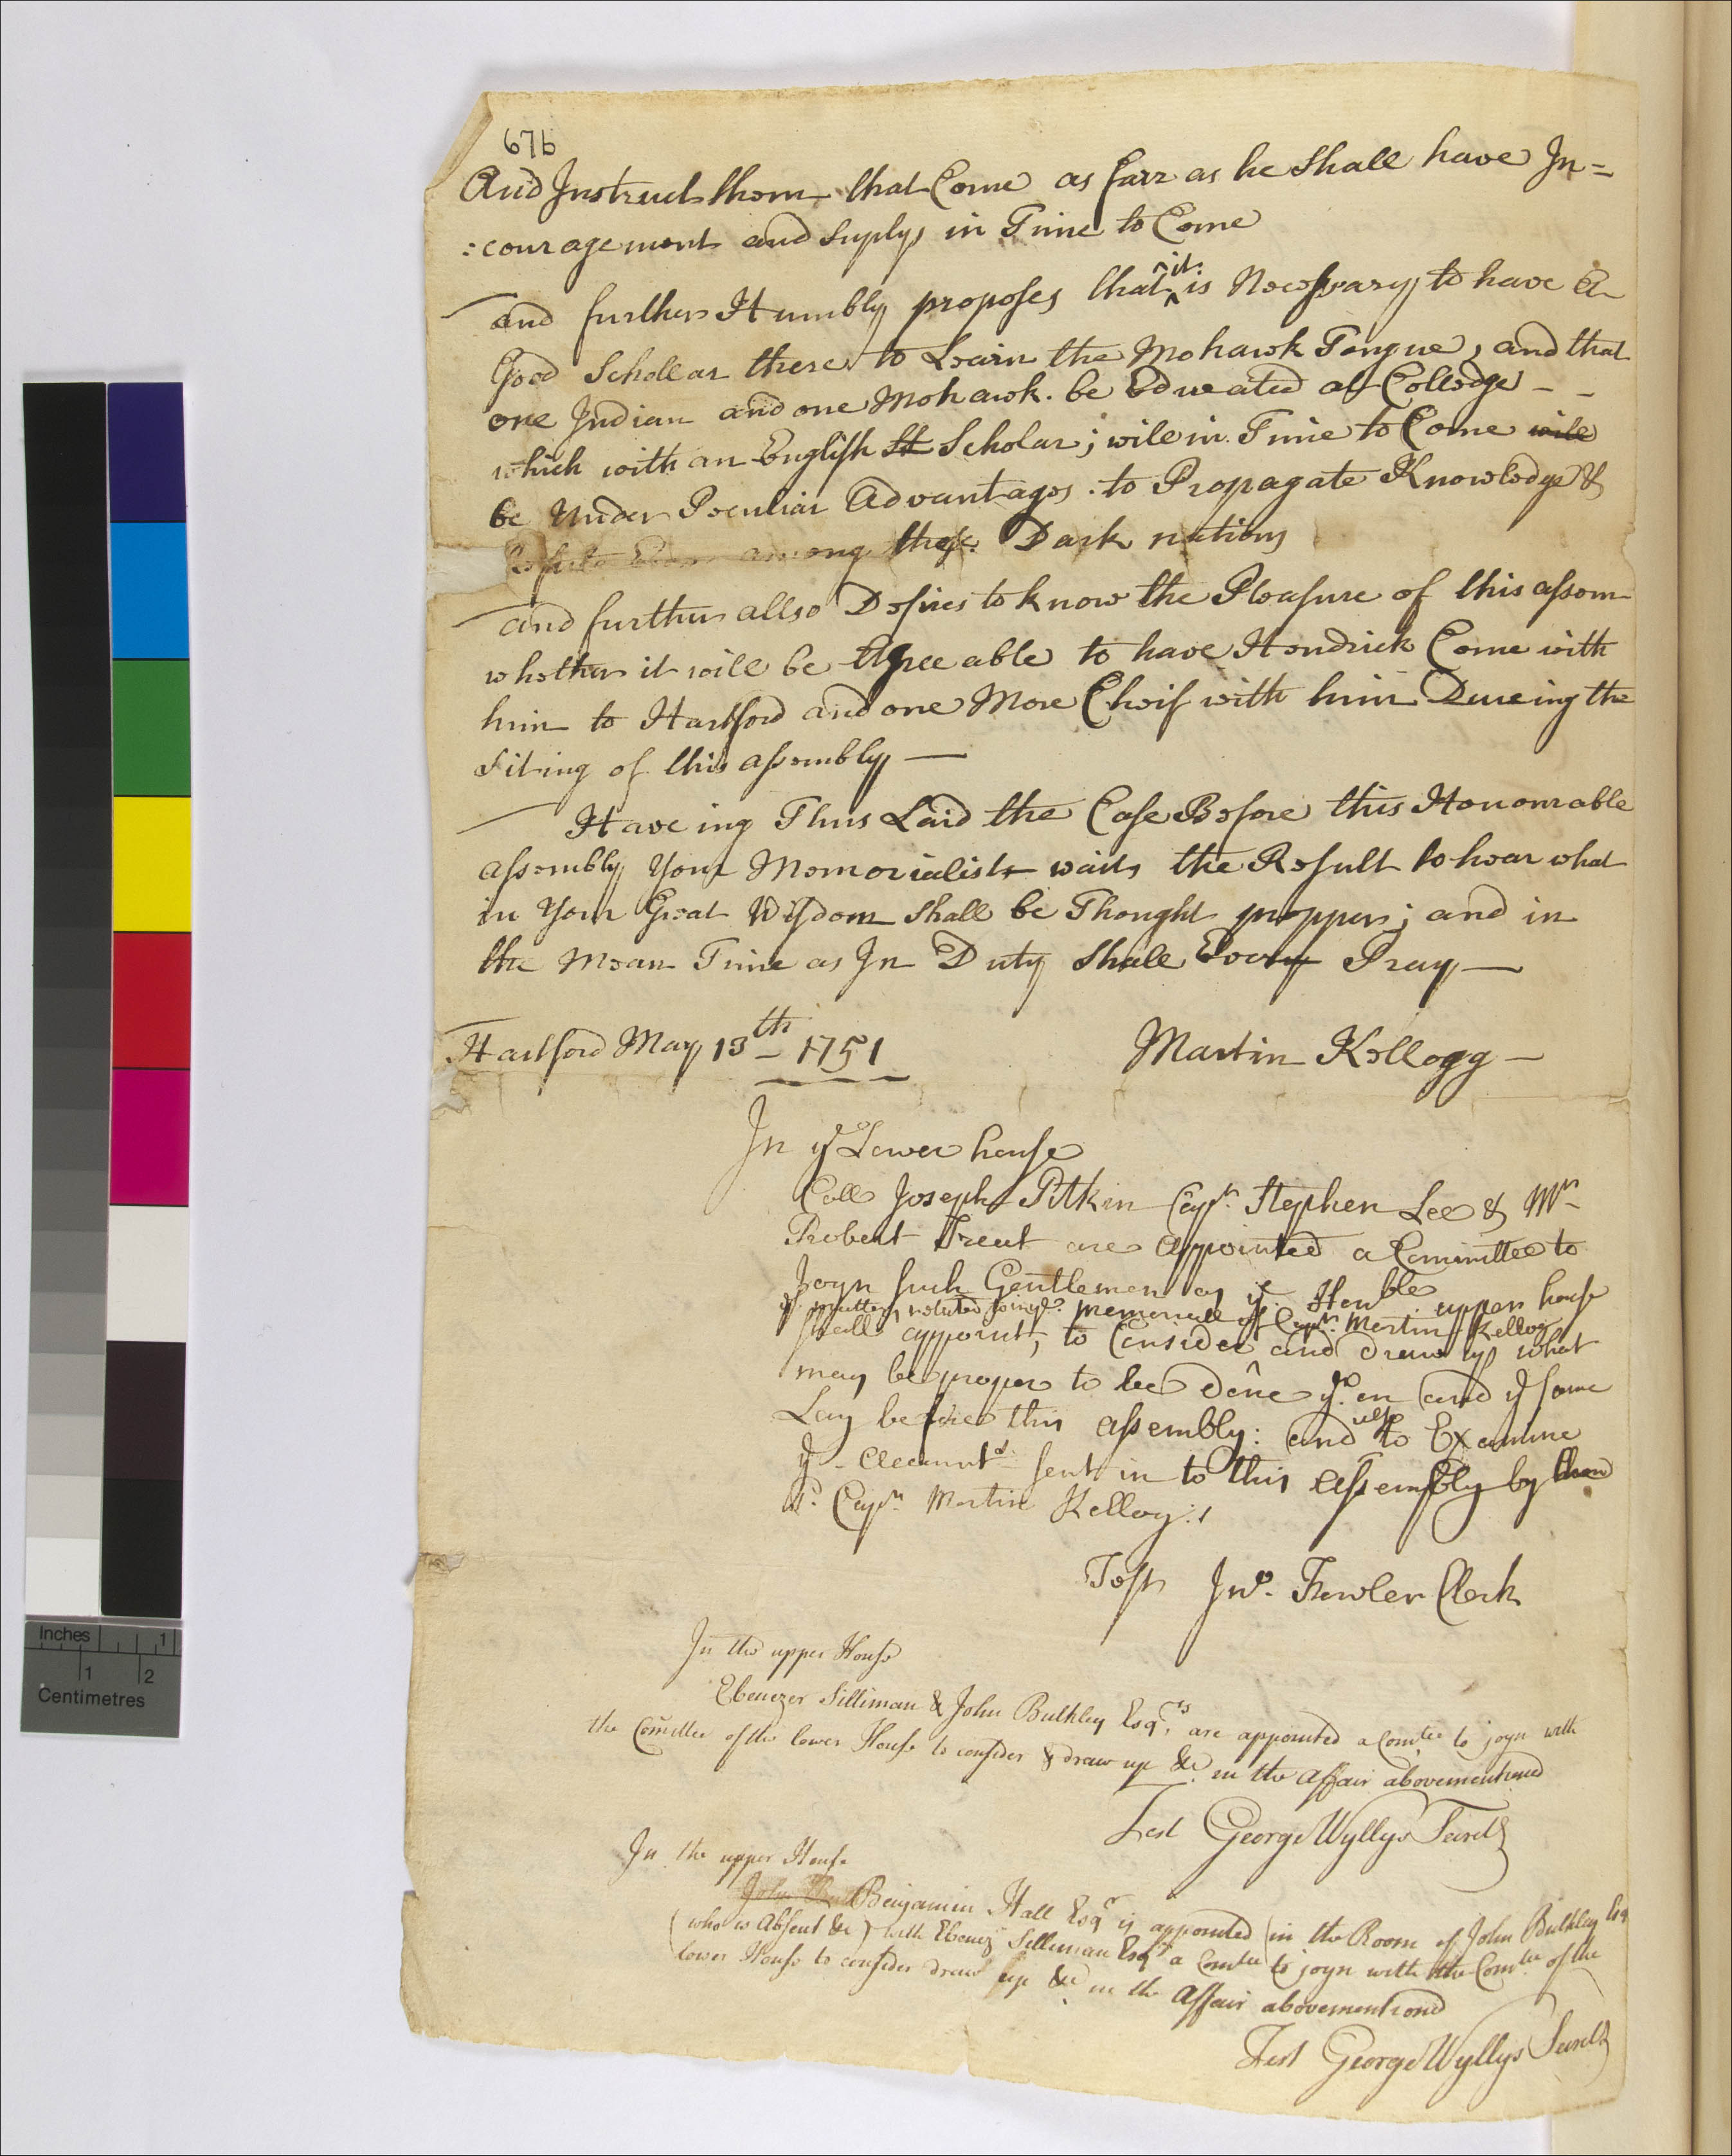 67b
And Instruct them that Come as farr as he Shall have In=
:couragement and Suplys in Time to Come
and further Humbly proposes that it is Necessary to have A
Good Schollar there to Learn the Mohawk Tongue, and that
one Indian and one Mohawk be Educated at Colledge - -
which with an English St Scholar; wile in Time to Come wile
be Under Peculiar Advantages to Propagate Knowledge &
among these Dark nations
and further allso Desires to know the Pleasure of this assem-
whether it will be Agreeable to have Hendrick Come with
him to Hartford and one More Cheif with him Dureing the
siting of this assembly —
Haveing Thus Laid the Case Before this Honourable
assembly Your Memorialist waits the Result to hear what
in Your Great Wisdom Shall be Thought propper; and in
the Mean Time as In Duty Shall Every Pray —
Hartford May 13th - 1751
Martin Kellogg —
In ye Lower house
Coll Joseph Pitkin Capn. Stephen Lee & Mr
Robert Treat are appointed a Committee to
Joyn such Gentlemen as ye Honble upper house
ye matters related to in ye memoriall of Capn. Martin Kellog
shall appoint, to Consider and draw up what
may be proper to be done yr.on and ye same
Lay before this assembly: and also to Examine
ye Accounts sent in to this Assembly by
sd. Capn. Martin Kellog:s
Test Jno. Fowler Clerk
In the upper House
Ebenezer Silliman & John Bulkley Esqrs. are appointed a Comtee to joyn with
the Comittee of the lower House to consider & draw up &c. in the Affair abovementioned
Test George Wyllys Secrety
In the upper House
Benjamin Hall Esqr is appointed (in the Room of John Bulkley Esq
(who is Absent &c) with Ebenezr Silliman Esqr a Comtee to joyn with the Comtee of the
lower House to consider draw up &c. in the Affair abovementiond
Test George Wyllys Secrety
Inches 1
1 2
Centimetres